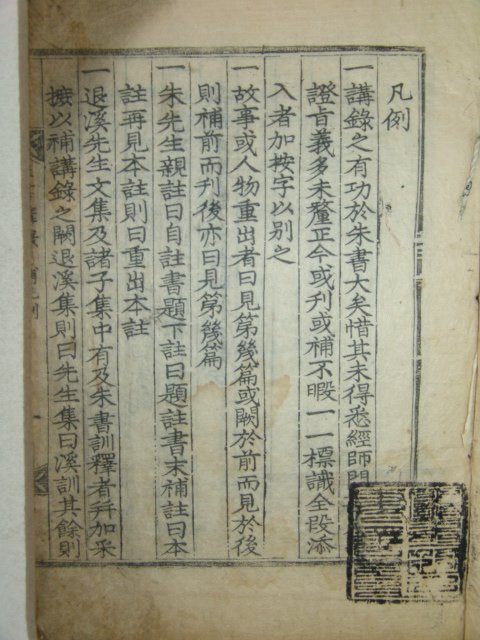 凡例
一講錄之有功於朱書大矣惜其未得悉經師門
證旨義多未釐正今或刊或補不暇一一標識全段添
入者加按字以別之
一故事或人物重出者曰見第幾篇或闕於前而見於後
則補前而刊後亦曰見第幾篇
一朱先生親註曰自註書題下註曰題註書末補註曰本
註再見本註則曰重出本註
一退溪先生文集及諸子集中有及朱書訓釋者幷加采
摭以補講錄之闕退溪集則曰先生集曰溪訓其餘則